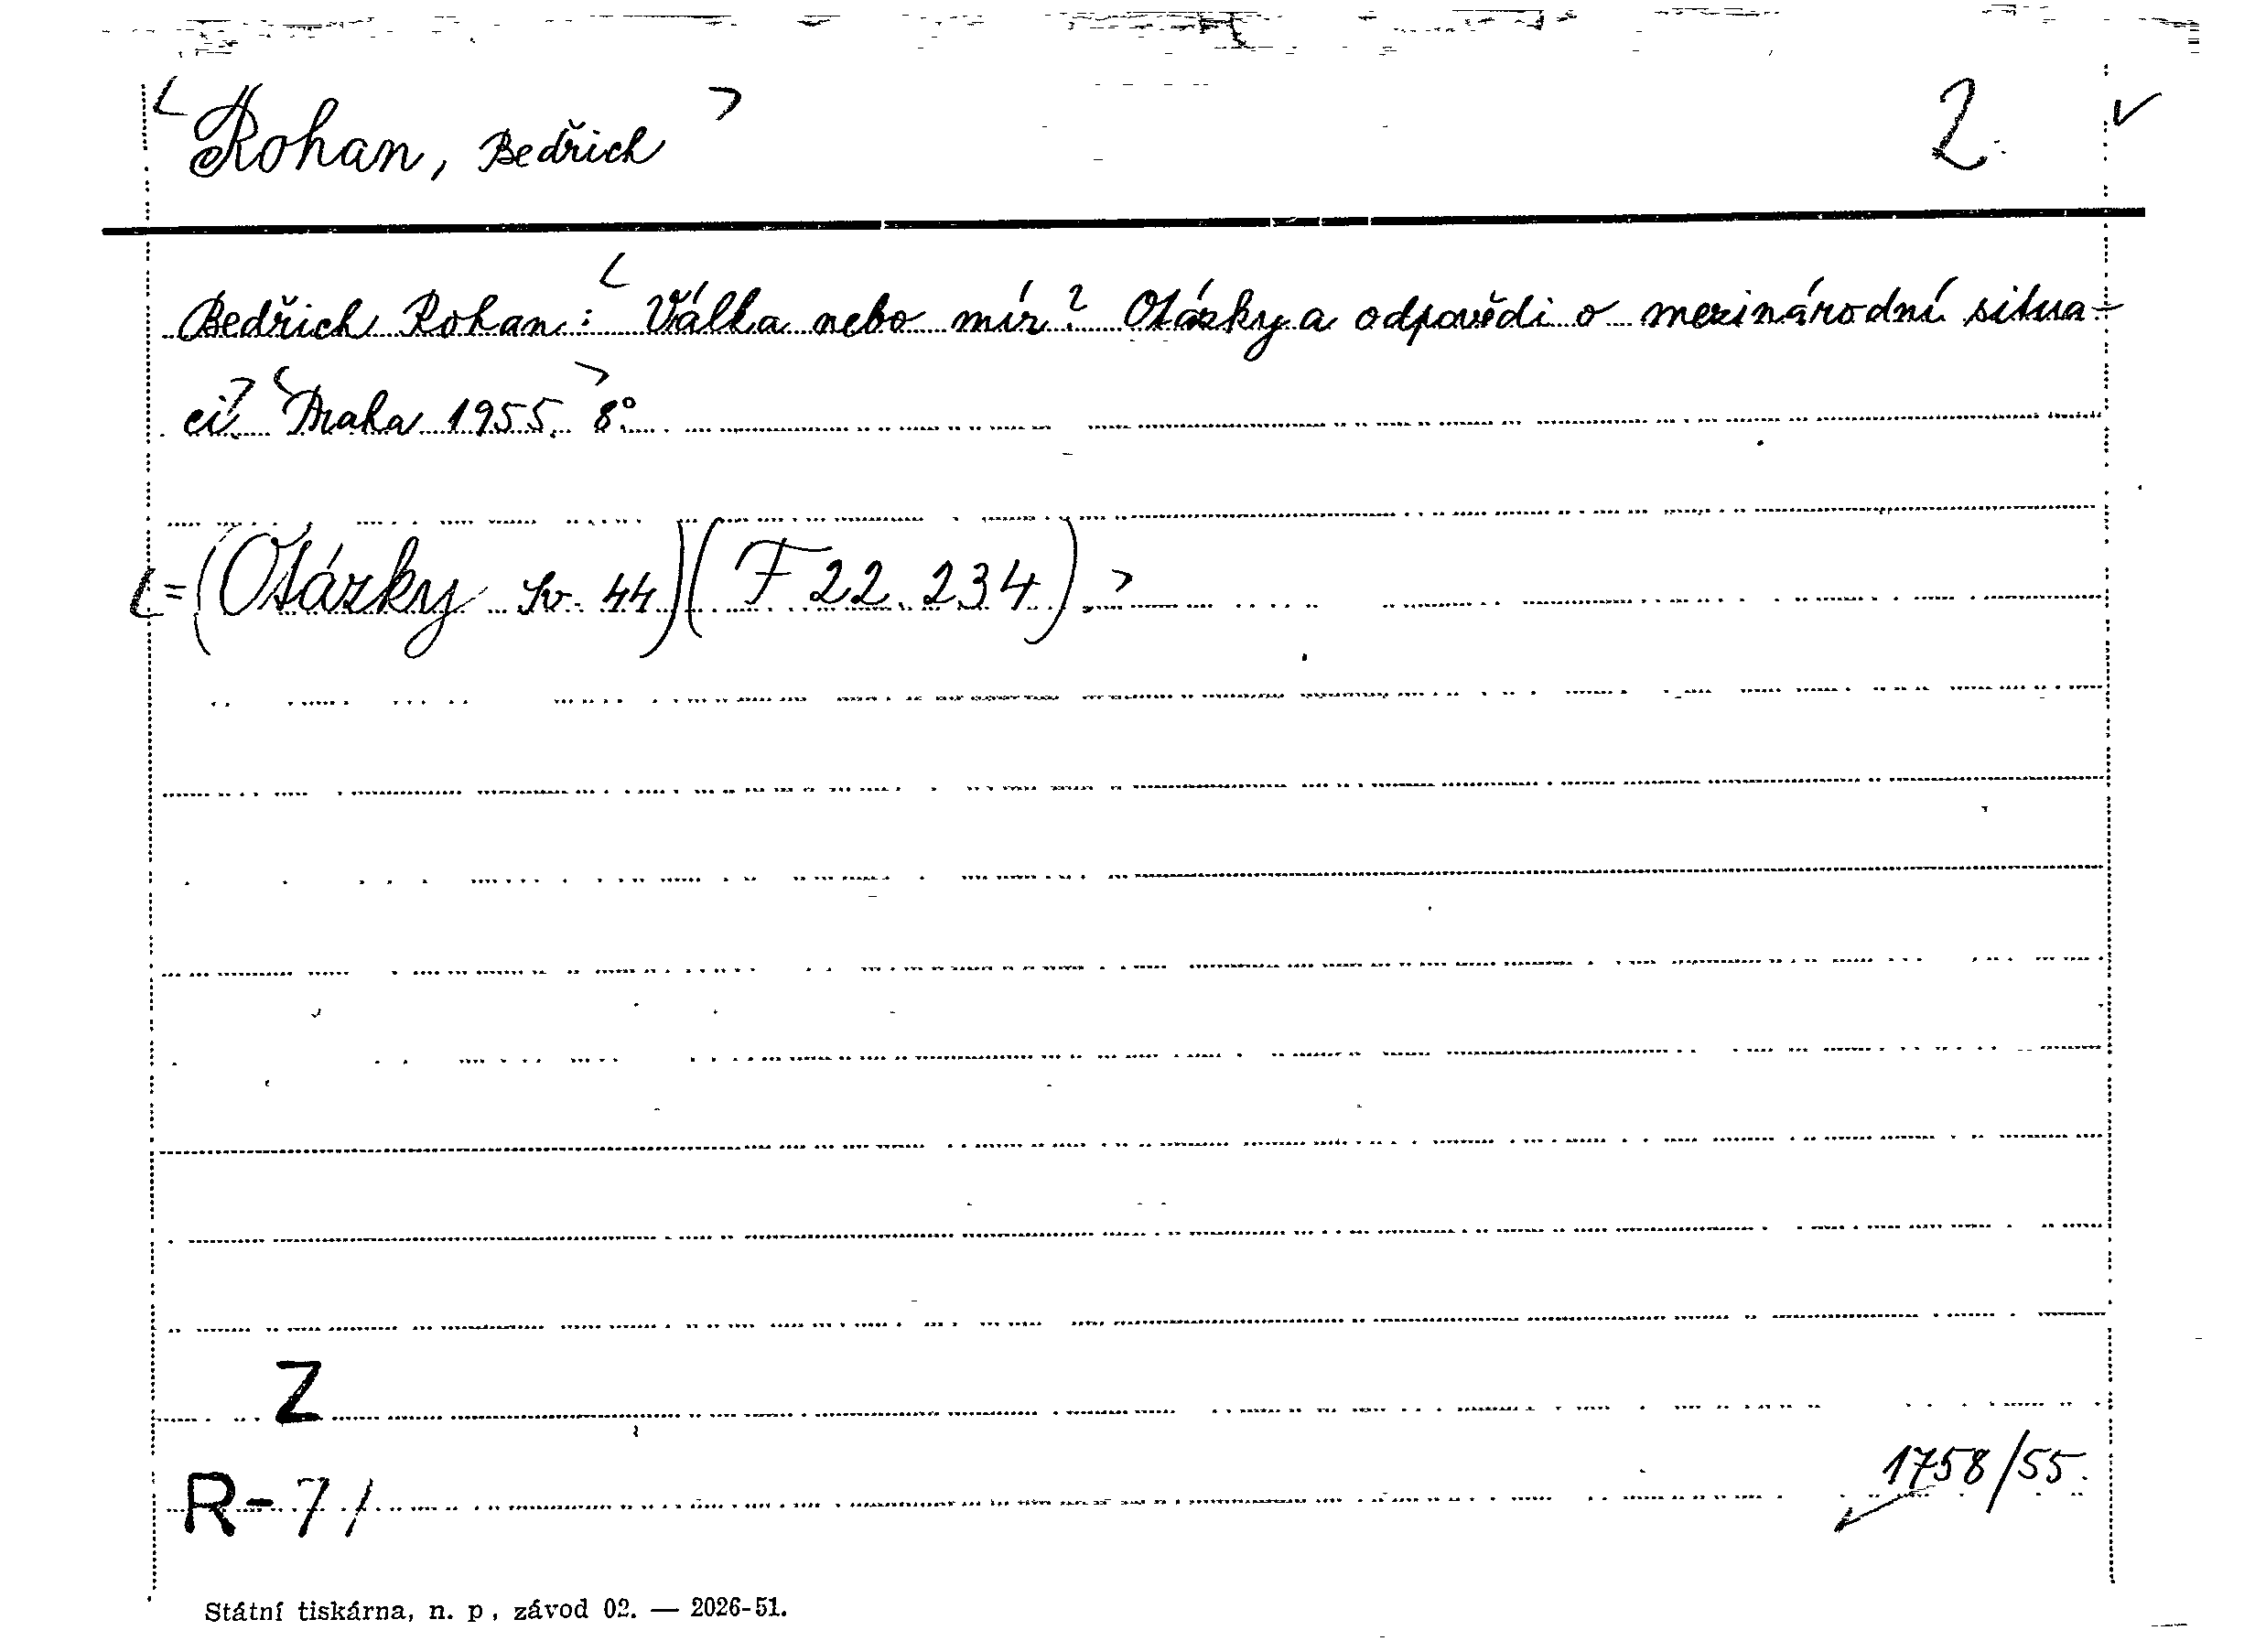 < Rohan, Bedřich > 2. ✓
Bedřich Rohan: < Válka nebo mír? Otázky a odpovědi o mezinárodní situa-
ci. > < Praha 1955. > 8°.
< = (Otázky sv. 44) (F 22.234). >
Z
R-71
1758/55.
Státní tiskárna, n. p, závod 02. — 2026-51.